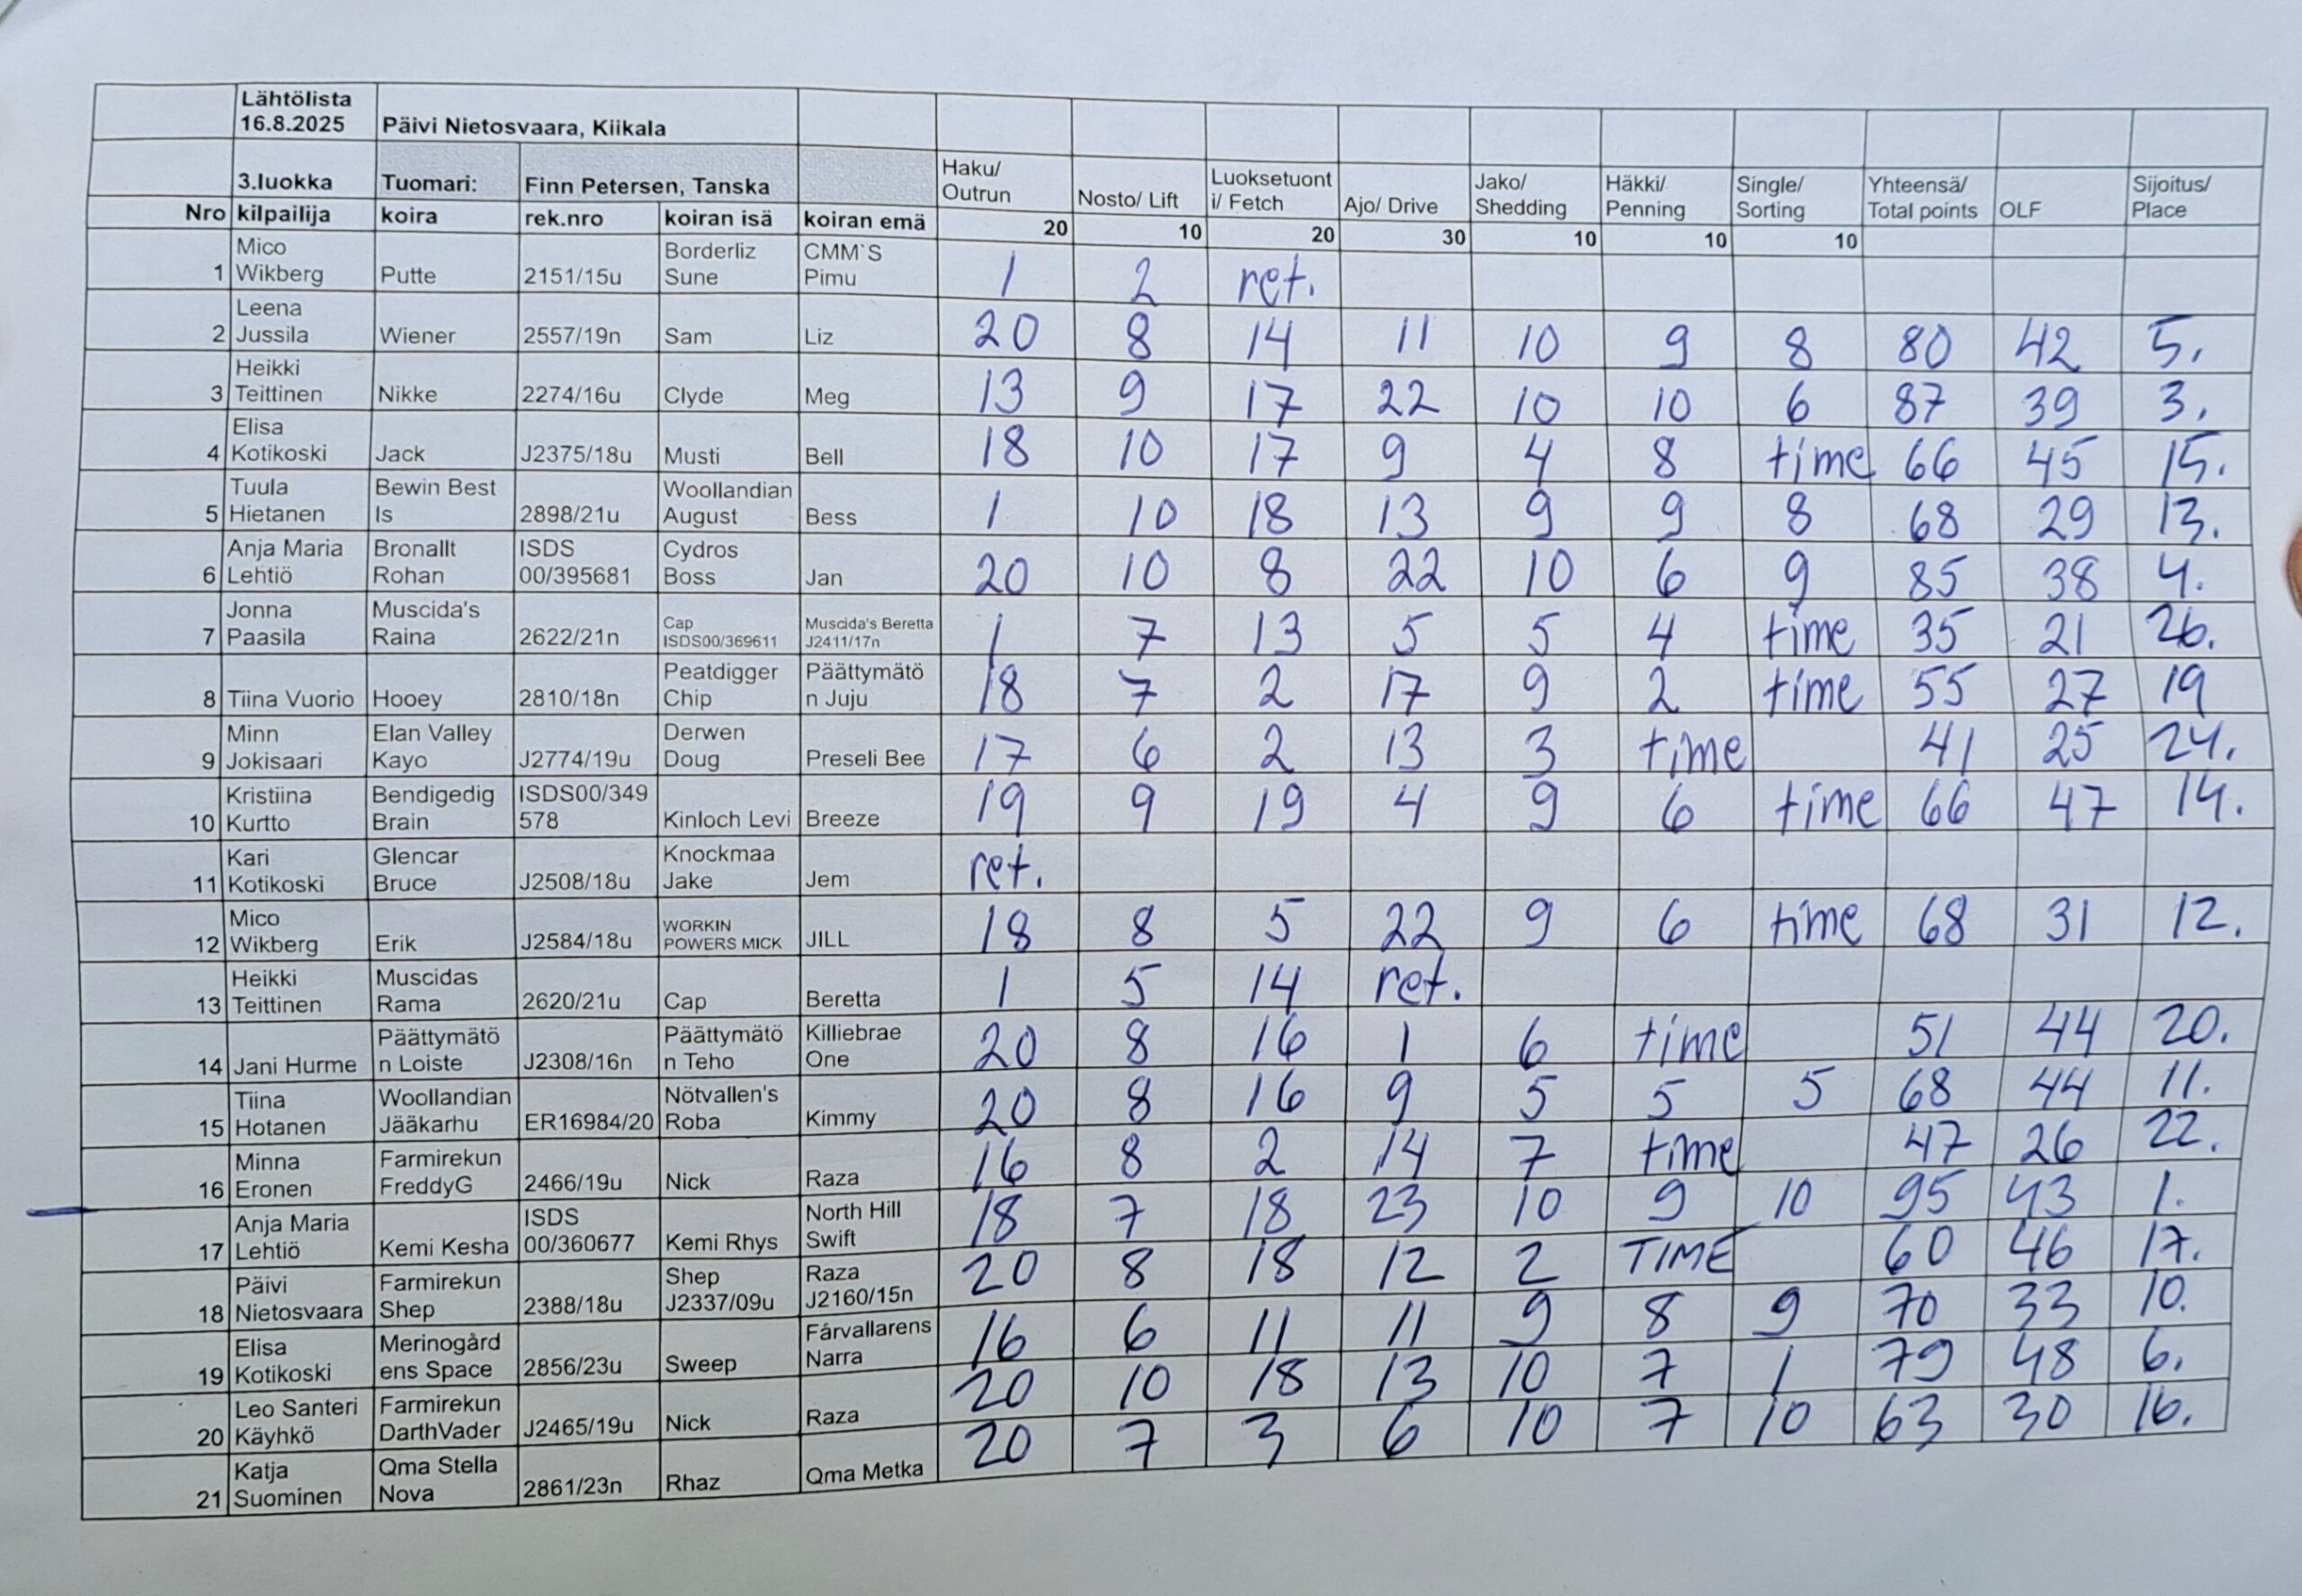 Lähtölista 16.8.2025 Päivi Nietosvaara, Kiikala
3.luokka Tuomari: Finn Petersen, Tanska Haku/ Outrun Nosto/ Lift Luoksetuonti/ Fetch Ajo/ Drive Jako/ Shedding Häkki/ Penning Single/ Sorting Yhteensä/ Total points OLF Sijoitus/ Place
Nro kilpailija koira rek.nro koiran isä koiran emä 20 10 20 30 10 10 10
1 Mico Wikberg Putte 2151/15u Borderliz Sune CMM`S Pimu 1 2 ret.
2 Leena Jussila Wiener 2557/19n Sam Liz 20 8 14 11 10 9 8 80 42 5.
3 Heikki Teittinen Nikke 2274/16u Clyde Meg 13 9 17 22 10 10 6 87 39 3.
4 Elisa Kotikoski Jack J2375/18u Musti Bell 18 10 17 9 4 8 time 66 45 15.
5 Tuula Hietanen Bewin Best Is 2898/21u Woollandian August Bess 1 10 18 13 9 9 8 68 29 13.
6 Anja Maria Lehtiö Bronallt Rohan ISDS 00/395681 Cydros Boss Jan 20 10 8 22 10 6 9 85 38 4.
7 Jonna Paasila Muscida's Raina 2622/21n Cap ISDS00/369611 Muscida's Beretta J2411/17n 1 7 13 5 5 4 time 35 21 26.
8 Tiina Vuorio Hooey 2810/18n Peatdigger Chip Päättymätön Juju 18 7 2 17 9 2 time 55 27 19
9 Minn Jokisaari Elan Valley Kayo J2774/19u Derwen Doug Preseli Bee 17 6 2 13 3 time 41 25 24.
10 Kristiina Kurtto Bendigedig Brain ISDS00/349578 Kinloch Levi Breeze 19 9 19 4 9 6 time 66 47 14.
11 Kari Kotikoski Glencar Bruce J2508/18u Knockmaa Jake Jem ret.
12 Mico Wikberg Erik J2584/18u WORKIN POWERS MICK JILL 18 8 5 22 9 6 time 68 31 12.
13 Heikki Teittinen Muscidas Rama 2620/21u Cap Beretta 1 5 14 ret.
14 Jani Hurme Päättymätön Loiste J2308/16n Päättymätön Teho Killiebrae One 20 8 16 1 6 time 51 44 20.
15 Tiina Hotanen Woollandian Jääkarhu ER16984/20 Nötvallen's Roba Kimmy 20 8 16 9 5 5 5 68 44 11.
16 Minna Eronen Farmirekun FreddyG 2466/19u Nick Raza 16 8 2 14 7 time 47 26 22.
17 Anja Maria Lehtiö Kemi Kesha ISDS 00/360677 Kemi Rhys North Hill Swift 18 7 18 23 10 9 10 95 43 1.
18 Päivi Nietosvaara Farmirekun Shep 2388/18u Shep J2337/09u Raza J2160/15n 20 8 18 12 2 TIME 60 46 17.
19 Elisa Kotikoski Merinogårdens Space 2856/23u Sweep Fårvallarens Narra 16 6 11 11 9 8 9 70 33 10.
20 Leo Santeri Käyhkö Farmirekun DarthVader J2465/19u Nick Raza 20 10 18 13 10 7 1 79 48 6.
21 Katja Suominen Qma Stella Nova 2861/23n Rhaz Qma Metka 20 7 3 6 10 7 10 63 30 16.